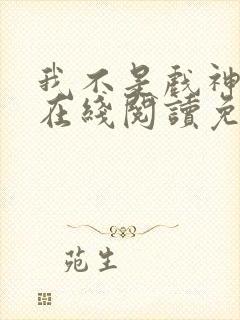 我不是戏神
在綫閱讀免
苑生